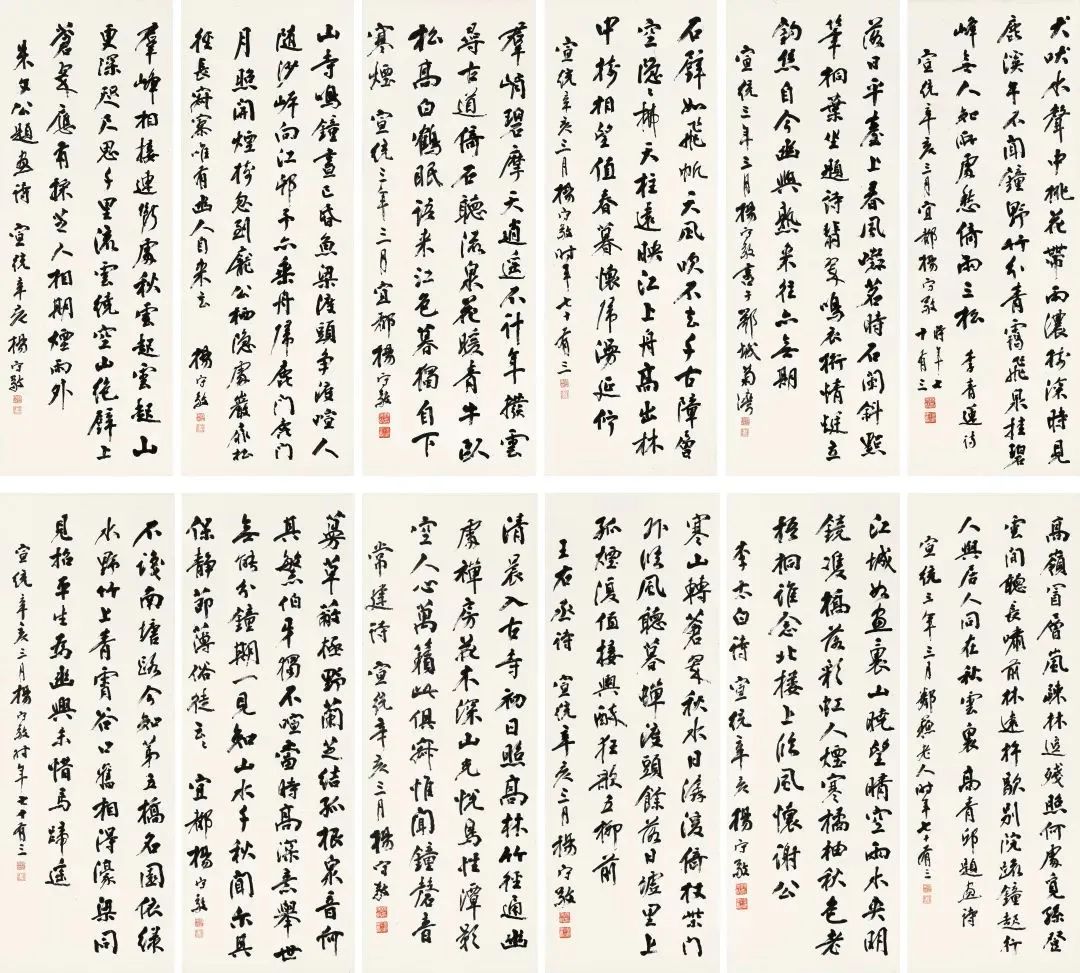 犬吠水聲中桃花帶雨濃樹深時見
鹿溪午不聞鐘野竹分青靄飛泉挂碧
峰無人知所處愁倚兩三松 李青蓮詩
宣統辛亥三月宜都楊守敬時年七十有三
落日平臺上春風啜茗時石闌斜點
筆桐葉坐題詩翡翠鳴衣桁蜻蜓立
釣絲自今幽興熟來往亦無期
宣統三年三月楊守敬書于鄂城菊灣
石壁如飛帆天風吹不去千古障雲
空隱〻排天柱遠映江上舟高出林
中樹相望值春暮懷歸漫延佇
宣統辛亥三月楊守敬時年七十有三
羣峭碧摩天逍遙不計年撥雲
尋古道倚石聽流泉花暖青牛臥
松高白鶴眠語來江色暮獨自下
寒煙 宣統三年三月宜都楊守敬
山寺鳴鐘晝已昏魚梁渡頭爭渡喧人
隨沙岸向江邨予亦乘舟歸鹿門鹿門
月照開煙樹忽到龐公栖隱處巖扉松
徑長寂寥唯有幽人自來去 楊守敬
羣峰相接連斷處秋雲起雲起山
更深咫尺思千里流雲繞空山絕壁上
蒼翠應有採芝人相期煙雨外
朱文公題畫詩 宣統辛亥楊守敬
高嶺冒層嵐疎林逗殘照何處覓孫登
雲間聽長嘯前林遠杵歇別院疏鐘起行
人與居人同在秋雲裏 高青邱題畫詩
宣統三年三月鄰蘇老人時年七十有三
江城如畫裏山曉望晴空雨水夾明
鏡雙橋落彩虹人煙寒橘柚秋色老
梧桐誰念北樓上臨風懷謝公
李太白詩 宣統辛亥楊守敬
寒山轉蒼翠秋水日潺湲倚杖柴門
外臨風聽暮蟬渡頭餘落日墟里上
孤煙復值接輿醉狂歌五柳前
王右丞詩 宣統辛亥三月楊守敬
清晨入古寺初日照高林竹徑通幽
處禪房花木深山光悅鳥性潭影
空人心萬籟此俱寂惟聞鐘磬音
常建詩 宣統辛亥三月楊守敬
蔓草蔽極野蘭芝結孤根衆音何
其繁伯牙獨不喧當時高深意舉世
無能分鐘期一見知山水千秋聞爾其
保靜節薄俗徒云〻 宜都楊守敬
不識南塘路今知第五橋名園依綠
水野竹上青霄谷口舊相得濠梁同
見招平生為幽興未惜馬蹄遙
宣統辛亥三月楊守敬時年七十有三